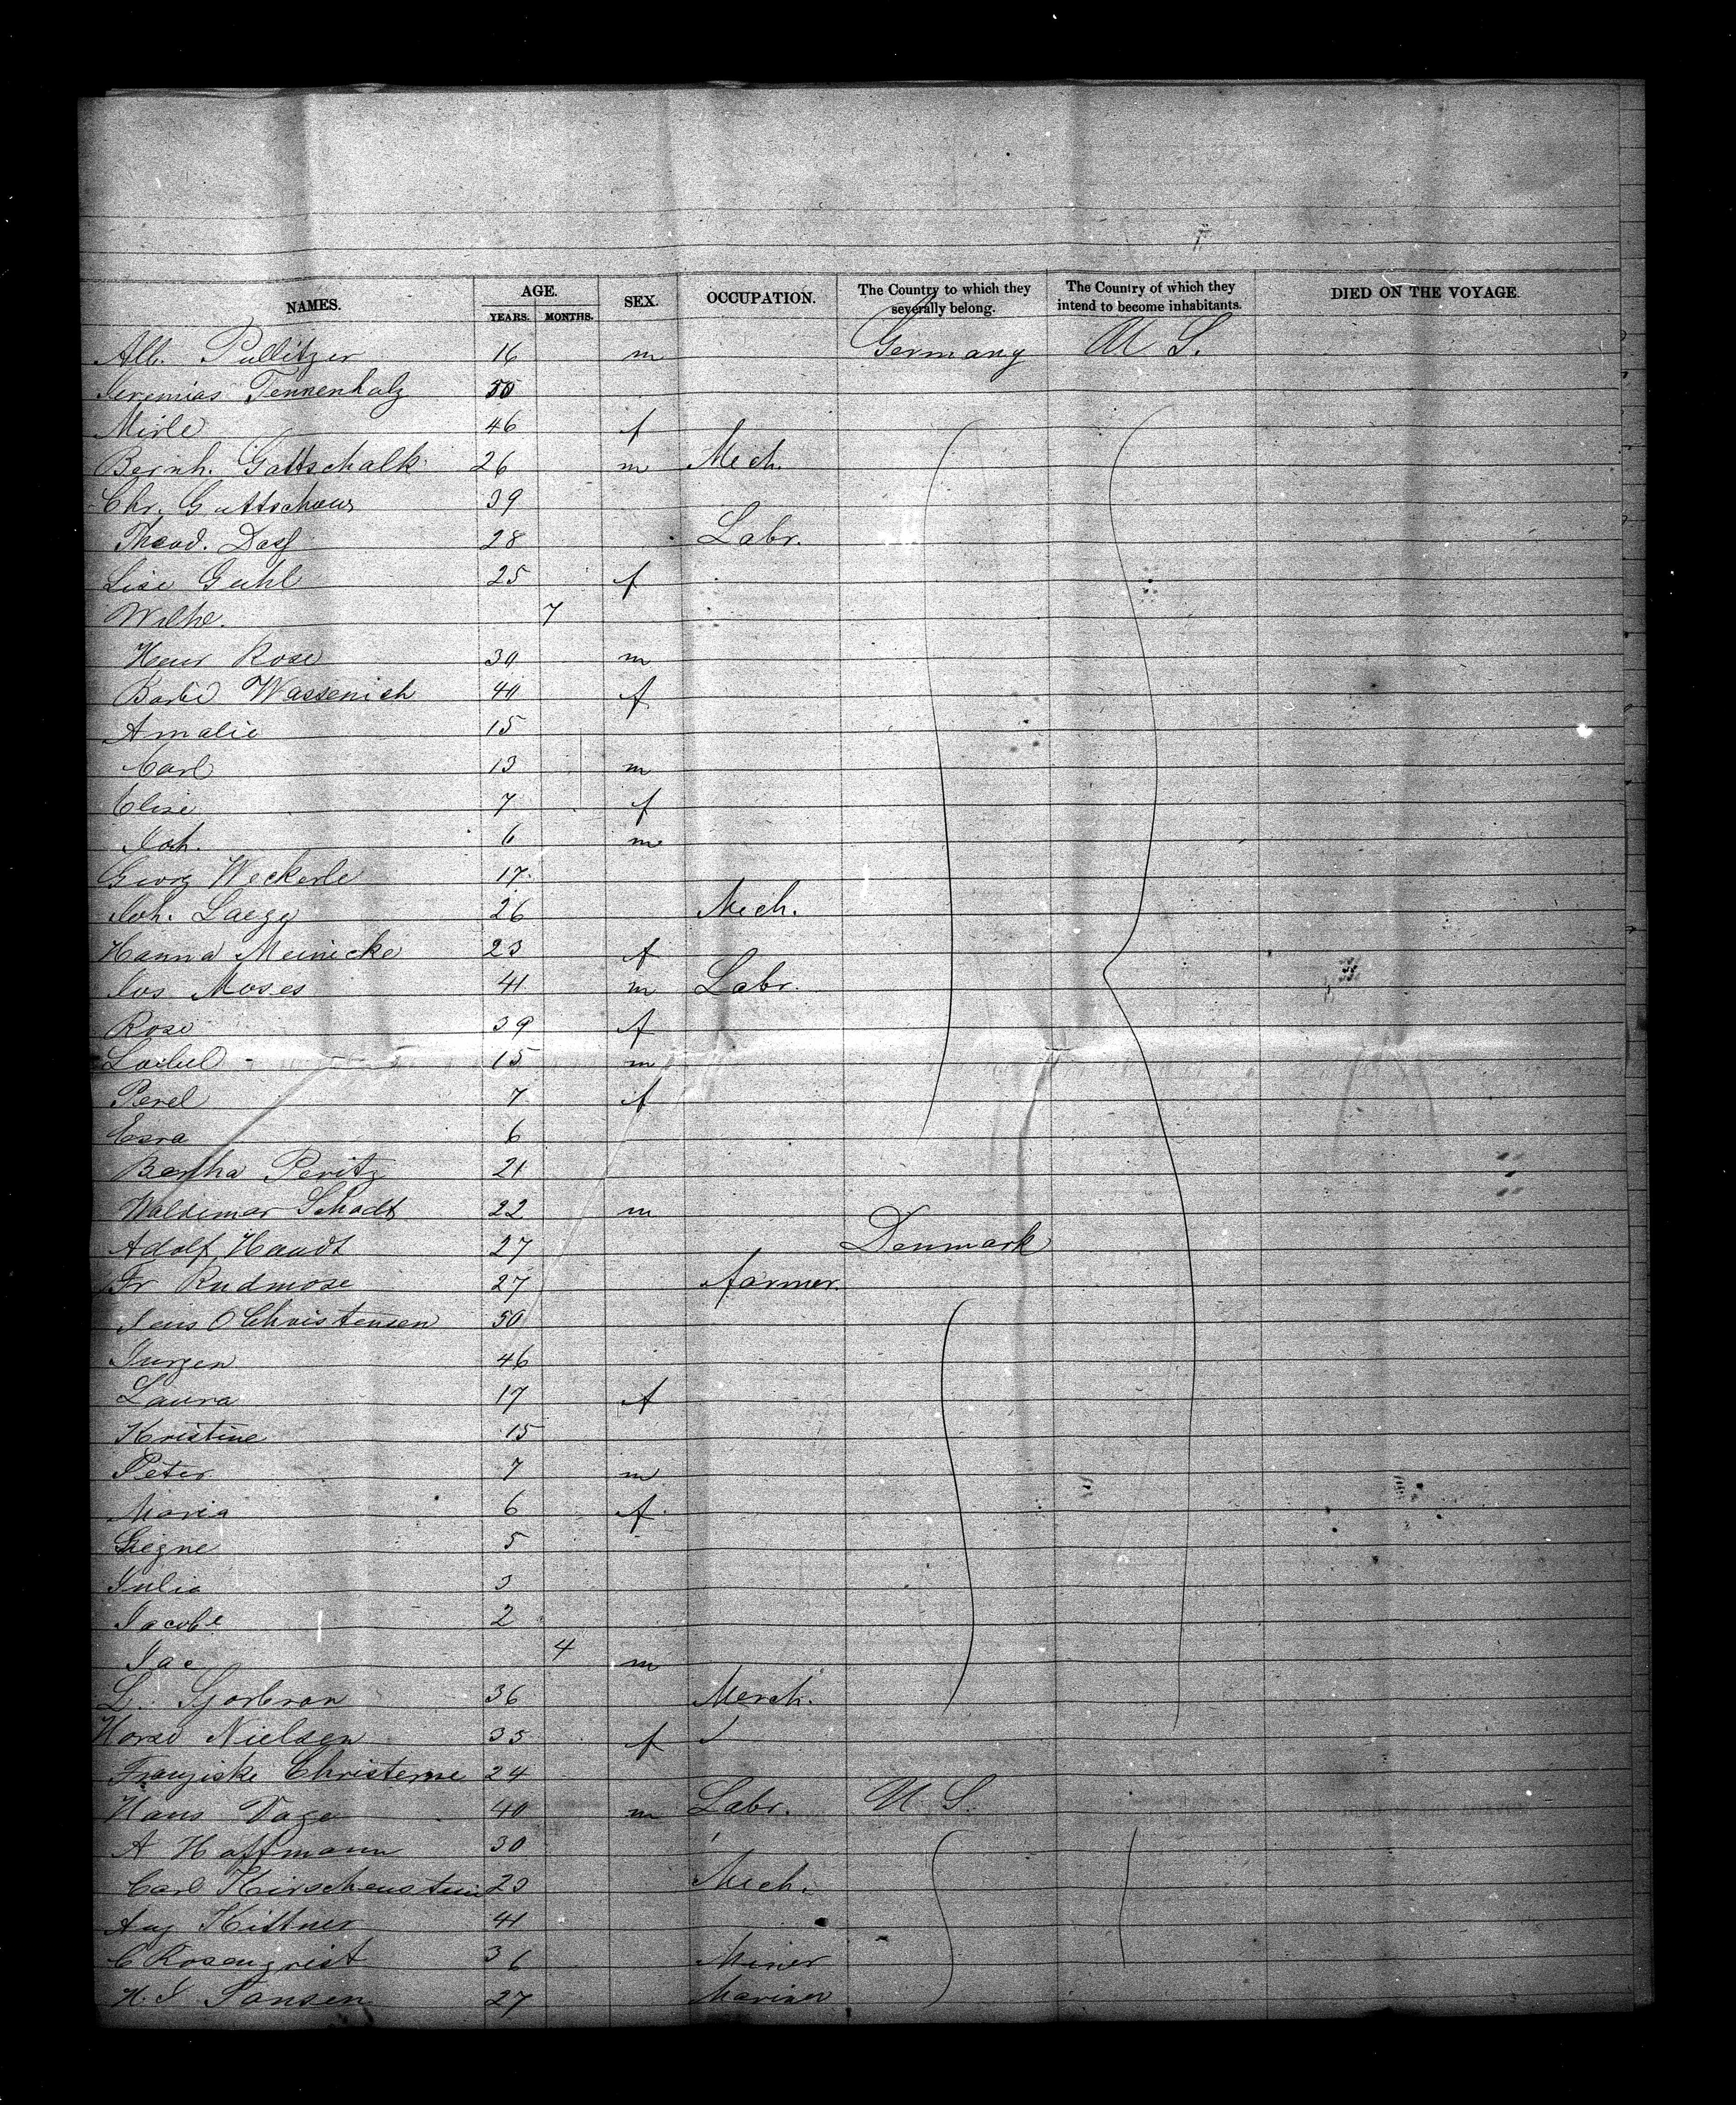 NAMES. AGE. YEARS. MONTHS. SEX. OCCUPATION. The Country to which they severally belong. The Country of which they intend to become inhabitants. DIED ON THE VOYAGE.
Alb. Pullitzer 16 m Germany U S.
Jeremias Tennenholz
Mirle 46 f
Bernh. Gottschalk 26 m Mech.
Chr. 39
Theod. 28 Labr.
Lise Guhl 25 f
Wilhe. 7
Henr Rose 30 m
Wassenich 40 f
Amalie 15
Carl 13 m
Elise 7 f
Joh. 6 m
Georg Weckerle 17
Joh. Laege 26 Mech.
Hanna Meinicke 23 f
Jos Moses 41 m Labr.
Rose 39 f
15 m
Perel 7 f
Esra 6
Bertha Peritz 21
Waldemar Schadt 22 m
Adolf Haudt 27 Denmark
Fr Rudmose 27 farmer.
Jens O Christensen 50
Jurgen 46
Laura 17 f
Kristine 15
Peter 7 m
Maria 6 f
Siegne 5
Julia 3
Jacobe 2
Jac 4 m
L. 36 Merch.
Nielsen 35 f
Franziske Christerne 24
Hans Vage 40 m Labr. U S.
A Hoffmann 30
Carl Hirschenstein 23 Mech.
Aug Kittner 41
C Rosenqvist 36 Miner
H. J Jansen 27 Mariner